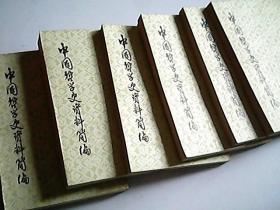 中国哲学史资料简编
中国哲学史资料简编
中国哲学史资料简编
中国哲学史资料简编
中国哲学史资料简编
中国哲学史资料简编